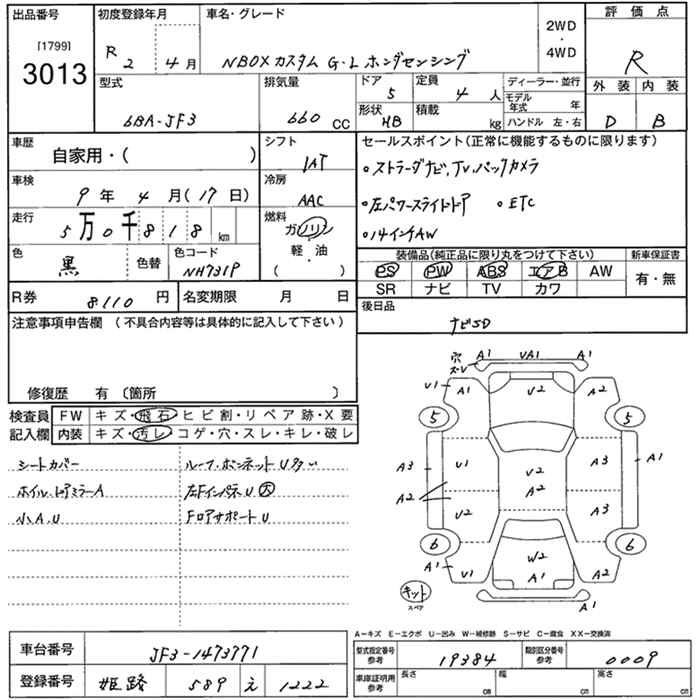 出品番号 初度登録年月 車名・グレード 2WD・4WD 評価点
[1799]
3013
R 2 4月
NBOXカスタム G・L ホンダセンシング
R
型式 排気量 ドア 5 定員 4 人 ディーラー・並行 外装 内装
6BA-JF3 660 CC 形状 HB 積載 kg モデル年式 年 ハンドル 左・右 D B
車歴 自家用・( ) シフト IAT セールスポイント(正常に機能するものに限ります)
・ストラーダナビ,TV,バックカメラ
車検 9年4月(17日) 冷房 AAC
・左パワースライドドア ・ETC
走行 5万0千818km 燃料 ガソリン 軽・油 ( )
・14インチAW
色 黒 色替 色コード NH731P
装備品(純正品に限り丸をつけて下さい) 新車保証書
PS PW ABS エアB AW 有・無
SR ナビ TV カワ
R券 8110円 名変期限 月 日
後日品
ナビSD
注意事項申告欄 (不具合内容等は具体的に記入して下さい)
修復歴 有 〔箇所 〕
検査員 FW キズ・飛石・ヒビ割・リペア跡・X要
記入欄 内装 キズ・汚レ・コゲ・穴・スレ・キレ・破レ
シートカバー ルーフ・ボンネットU多い
ホイル,ドアミラーA 左FインパネU大
小A,U FロアサポートU
穴 A1 VA1 A1
ス・U
U1 A1 U2 A2
5 5
A3 U1 U2 A3 A1
A2 A2
U2 A3
6 6
W2
A1 U1 A1 A2
キット
スペア A1 A1
A-キズ E-エクボ U-凹み W-補修跡 S-サビ C-腐食 XX-交換済
車台番号 JF3-1473771 型式指定番号 参考 19384 類別区分番号 参考 0009
登録番号 姫路 589 え 1222 車庫証明用 参考 長さ cm 幅 cm 高さ cm